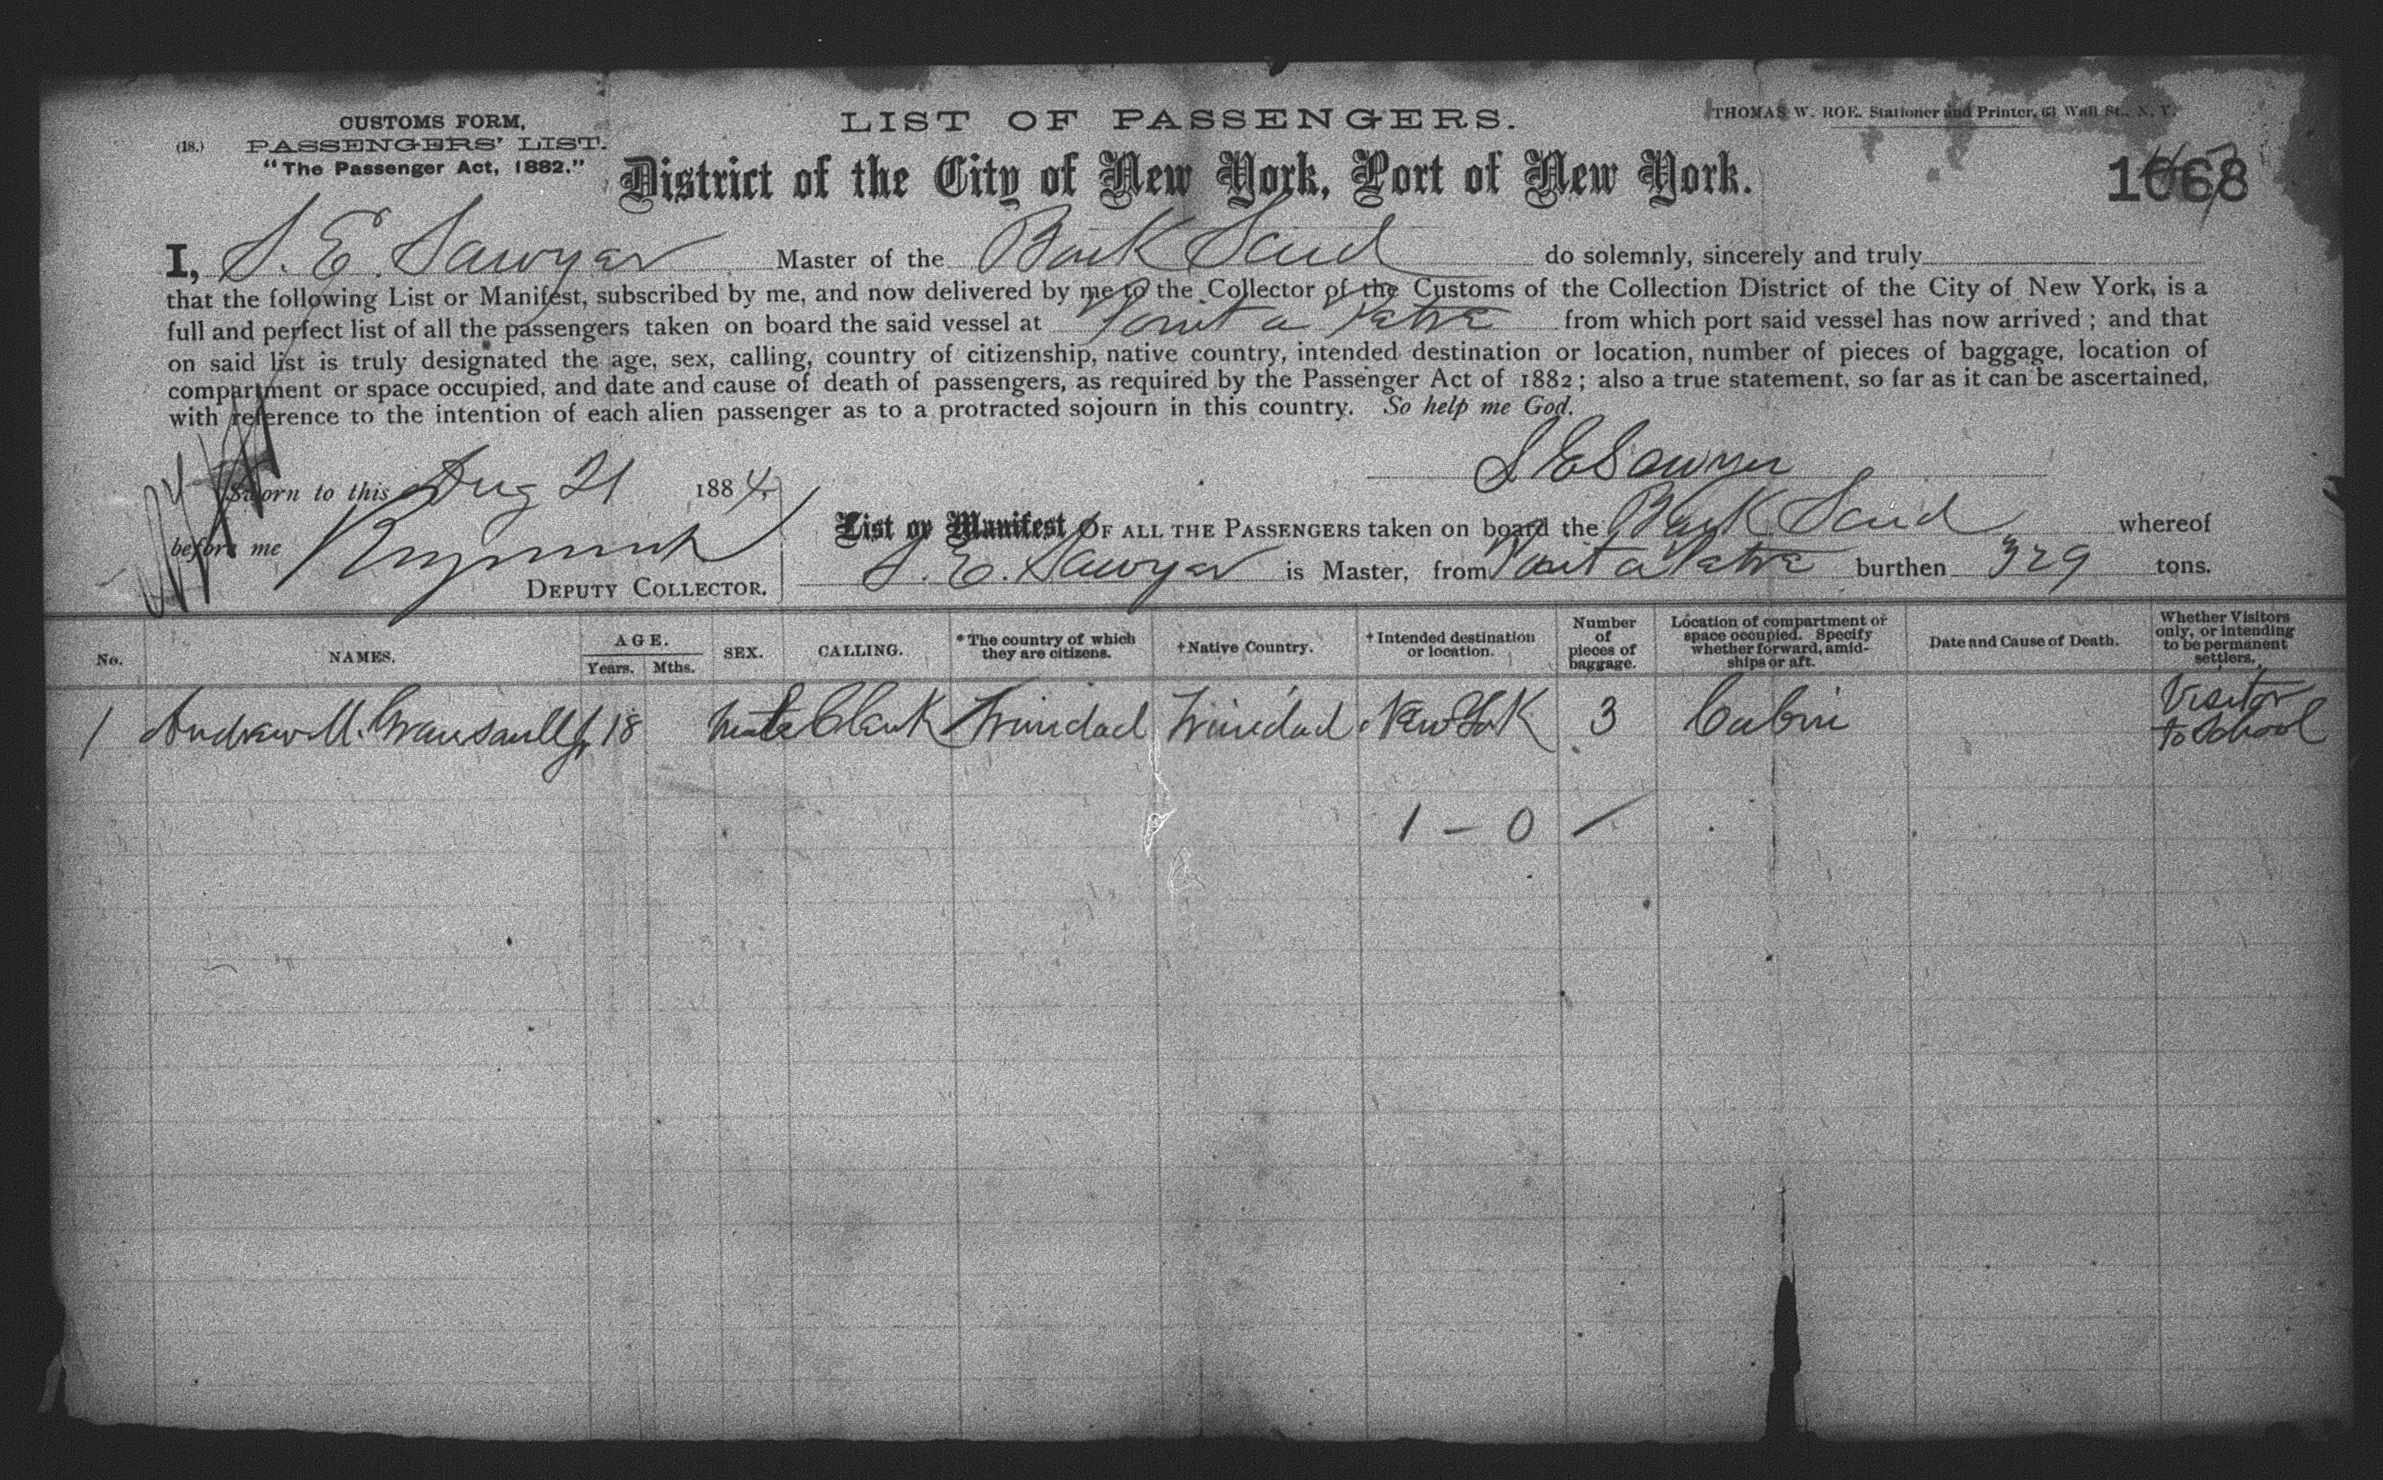 CUSTOMS FORM,
(18.) PASSENGERS' LIST.
"The Passenger Act, 1882."
LIST OF PASSENGERS.
THOMAS W. ROE. Stationer and Printer, 63 Wall St., N. Y.
District of the City of New York, Port of New York.
1068
I, S. E. Sawyer Master of the Bark Said do solemnly, sincerely and truly
that the following List or Manifest, subscribed by me, and now delivered by me to the Collector of the Customs of the Collection District of the City of New York, is a
full and perfect list of all the passengers taken on board the said vessel at Point a Petre from which port said vessel has now arrived ; and that
on said list is truly designated the age, sex, calling, country of citizenship, native country, intended destination or location, number of pieces of baggage, location of
compartment or space occupied, and date and cause of death of passengers, as required by the Passenger Act of 1882 ; also a true statement, so far as it can be ascertained,
with reference to the intention of each alien passenger as to a protracted sojourn in this country. So help me God.
S E Sawyer
Sworn to this Aug 21 1884.
before me
DEPUTY COLLECTOR.
List or Manifest OF ALL THE PASSENGERS taken on board the Bark Said whereof
S. E. Sawyer is Master, from Point a Petre burthen 329 tons.
No. NAMES. AGE. Years. Mths. SEX. CALLING. *The country of which they are citizens. †Native Country. †Intended destination or location. Number of pieces of baggage. Location of compartment or space occupied. Specify whether forward, amidships or aft. Date and Cause of Death. Whether Visitors only, or intending to be permanent settlers.
1 Andrew M. Gransaull Jr 18 male Clerk Trinidad Trinidad New York 3 Cabin Visitor to School
1 - 0